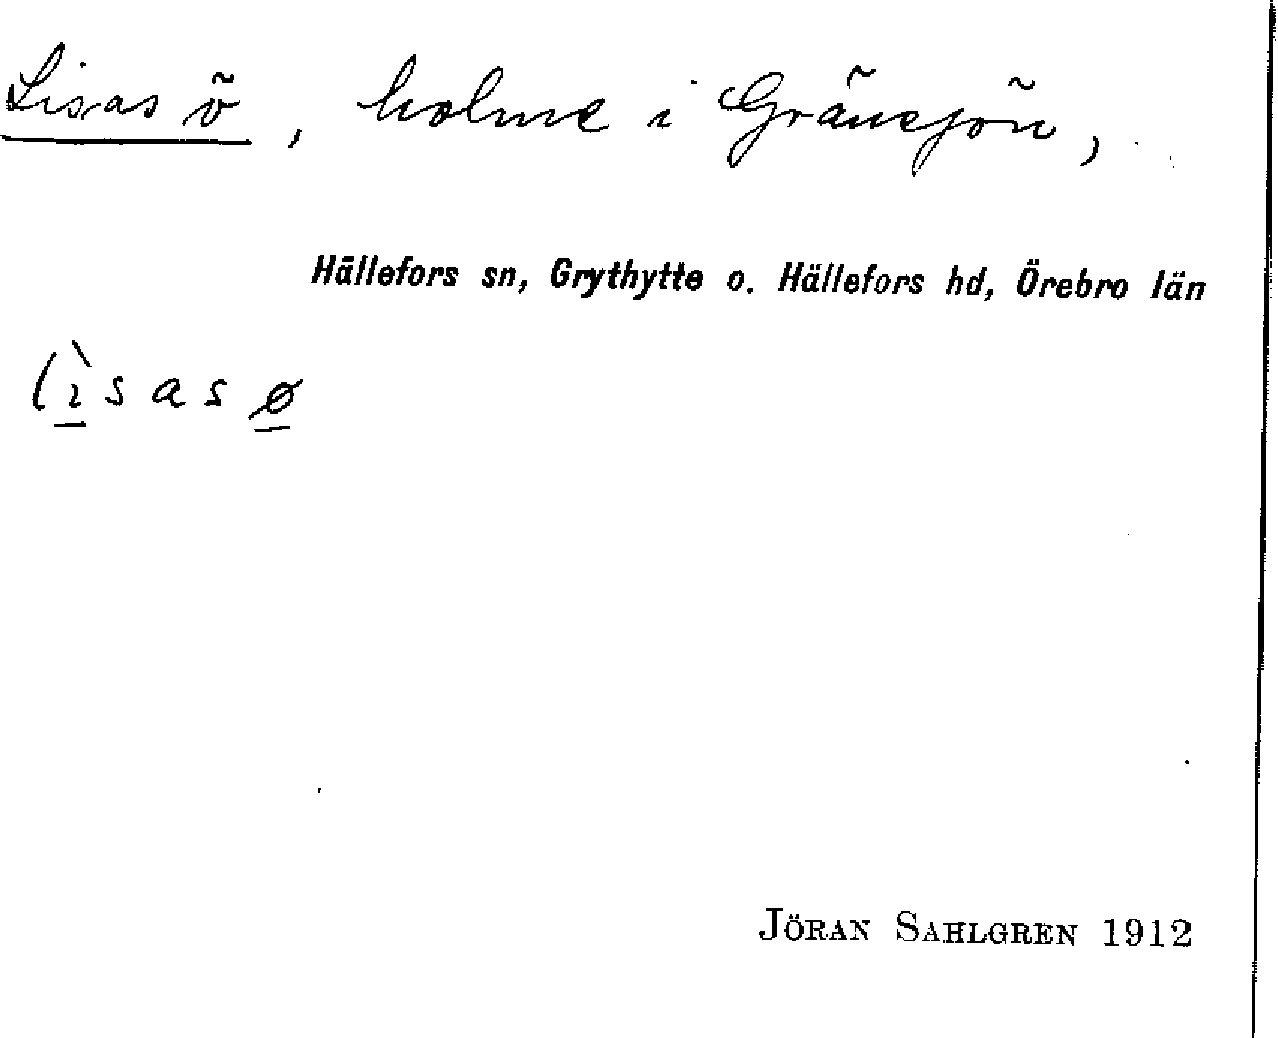 Lisas ö, holme i Gränsjön,
Hällefors sn, Grythytte o. Hällefors hd, Örebro län
lìsas ø
JÖRAN SAHLGREN 1912